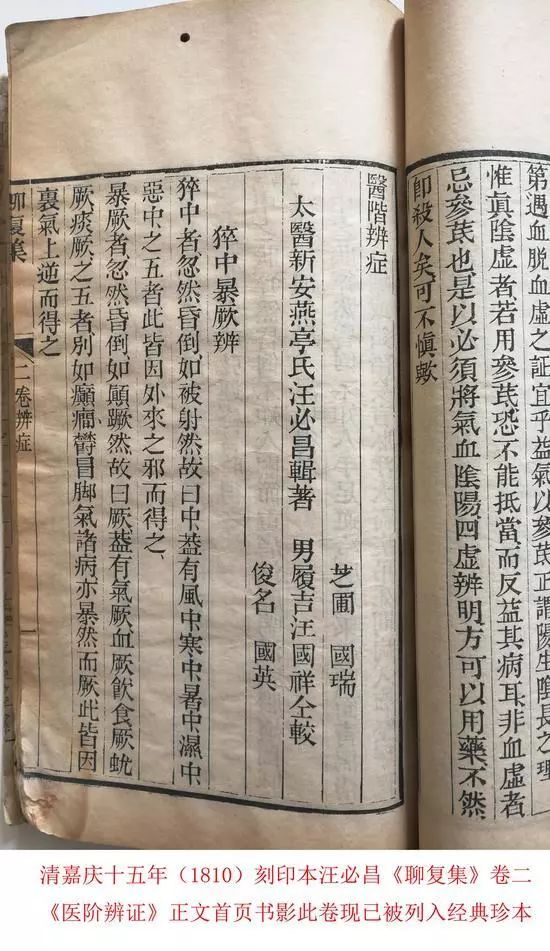 第遇血脫血虛之証宜乎益氣參芪正謂陽生陰長之理
惟眞陰虛者若用參芪恐不能抵當而反益其病耳非血虛者
忌參芪也是以必須將氣血陰陽四虛辨明方可以用藥不然
卽殺人矣可不慎歟
醫階辨症
芝圃 國瑞
太醫新安燕亭氏汪必昌輯著 男履吉汪國祥仝較
俊名 國英
猝中暴厥辨
猝中者忽然昏倒如被射然故曰中葢有風中寒中暑中濕中
惡中之五者此皆因外來之邪而得之
暴厥者忽然昏倒如顛蹶然故曰厥葢有氣厥血厥飮食厥蚘
厥痰厥之五者別如癲癇鬱冒脚氣諸病亦暴然而厥此皆因
裏氣上逆而得之
聊復集 二卷辨症
清嘉庆十五年（1810）刻印本汪必昌《聊复集》卷二
《医阶辨证》正文首页书影此卷现已被列入经典珍本